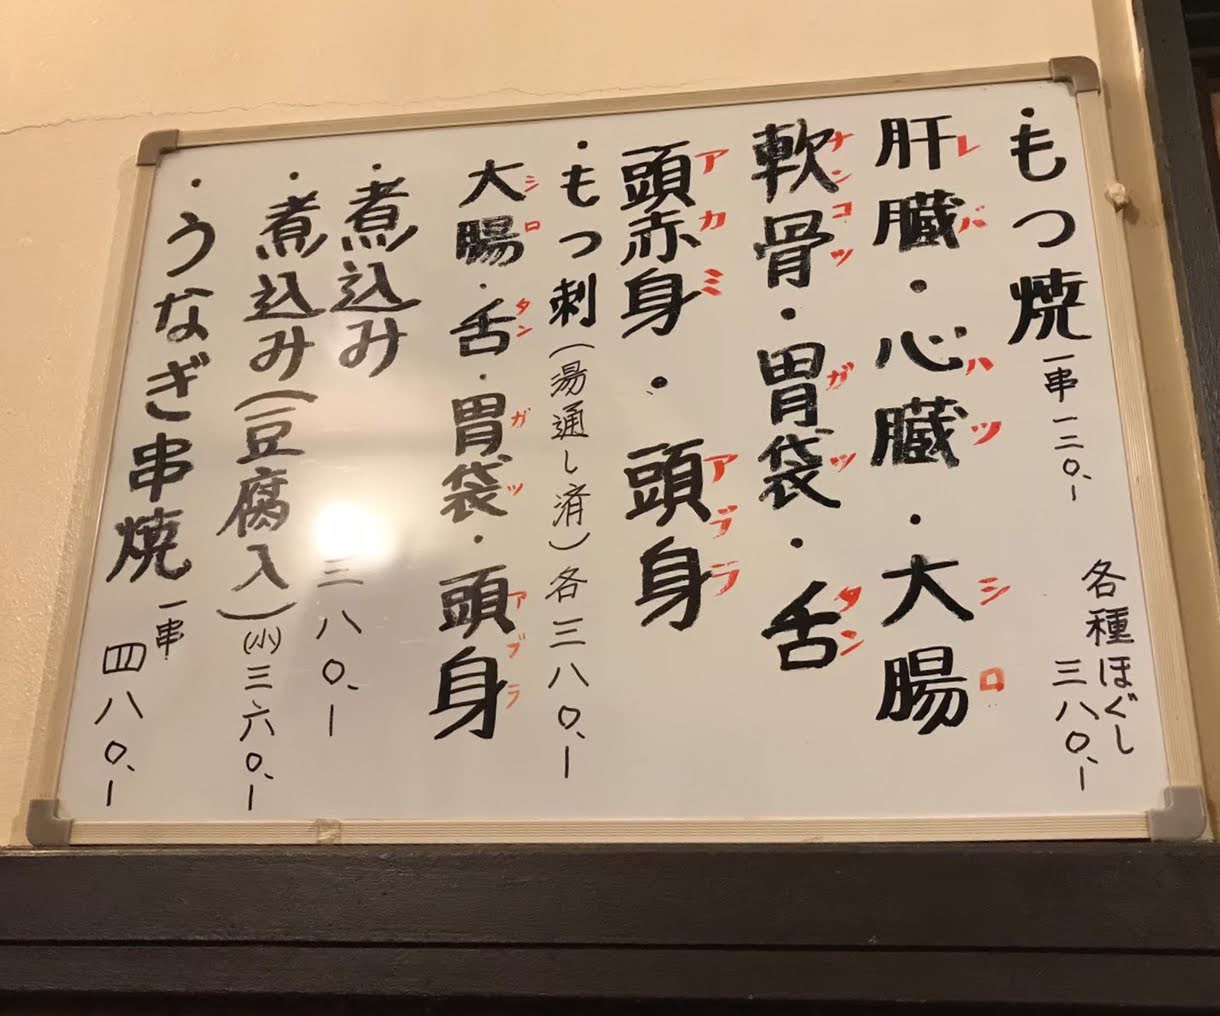 ・もつ焼 一串一二〇、ー
各種ほぐし
三八〇、ー
肝臓・心臓・大腸
レバ ハツ シロ
軟骨・胃袋・舌
ナンコツ ガツ タン
頭赤身・頭身
アカミ アブラ
・もつ刺(湯通し済)各三八〇、ー
大腸・舌・胃袋・頭身
シロ タン ガツ アブラ
・煮込み 三八〇、ー
・煮込み(豆腐入)(小)三六〇、ー
・うなぎ串焼 一串
四八〇、ー